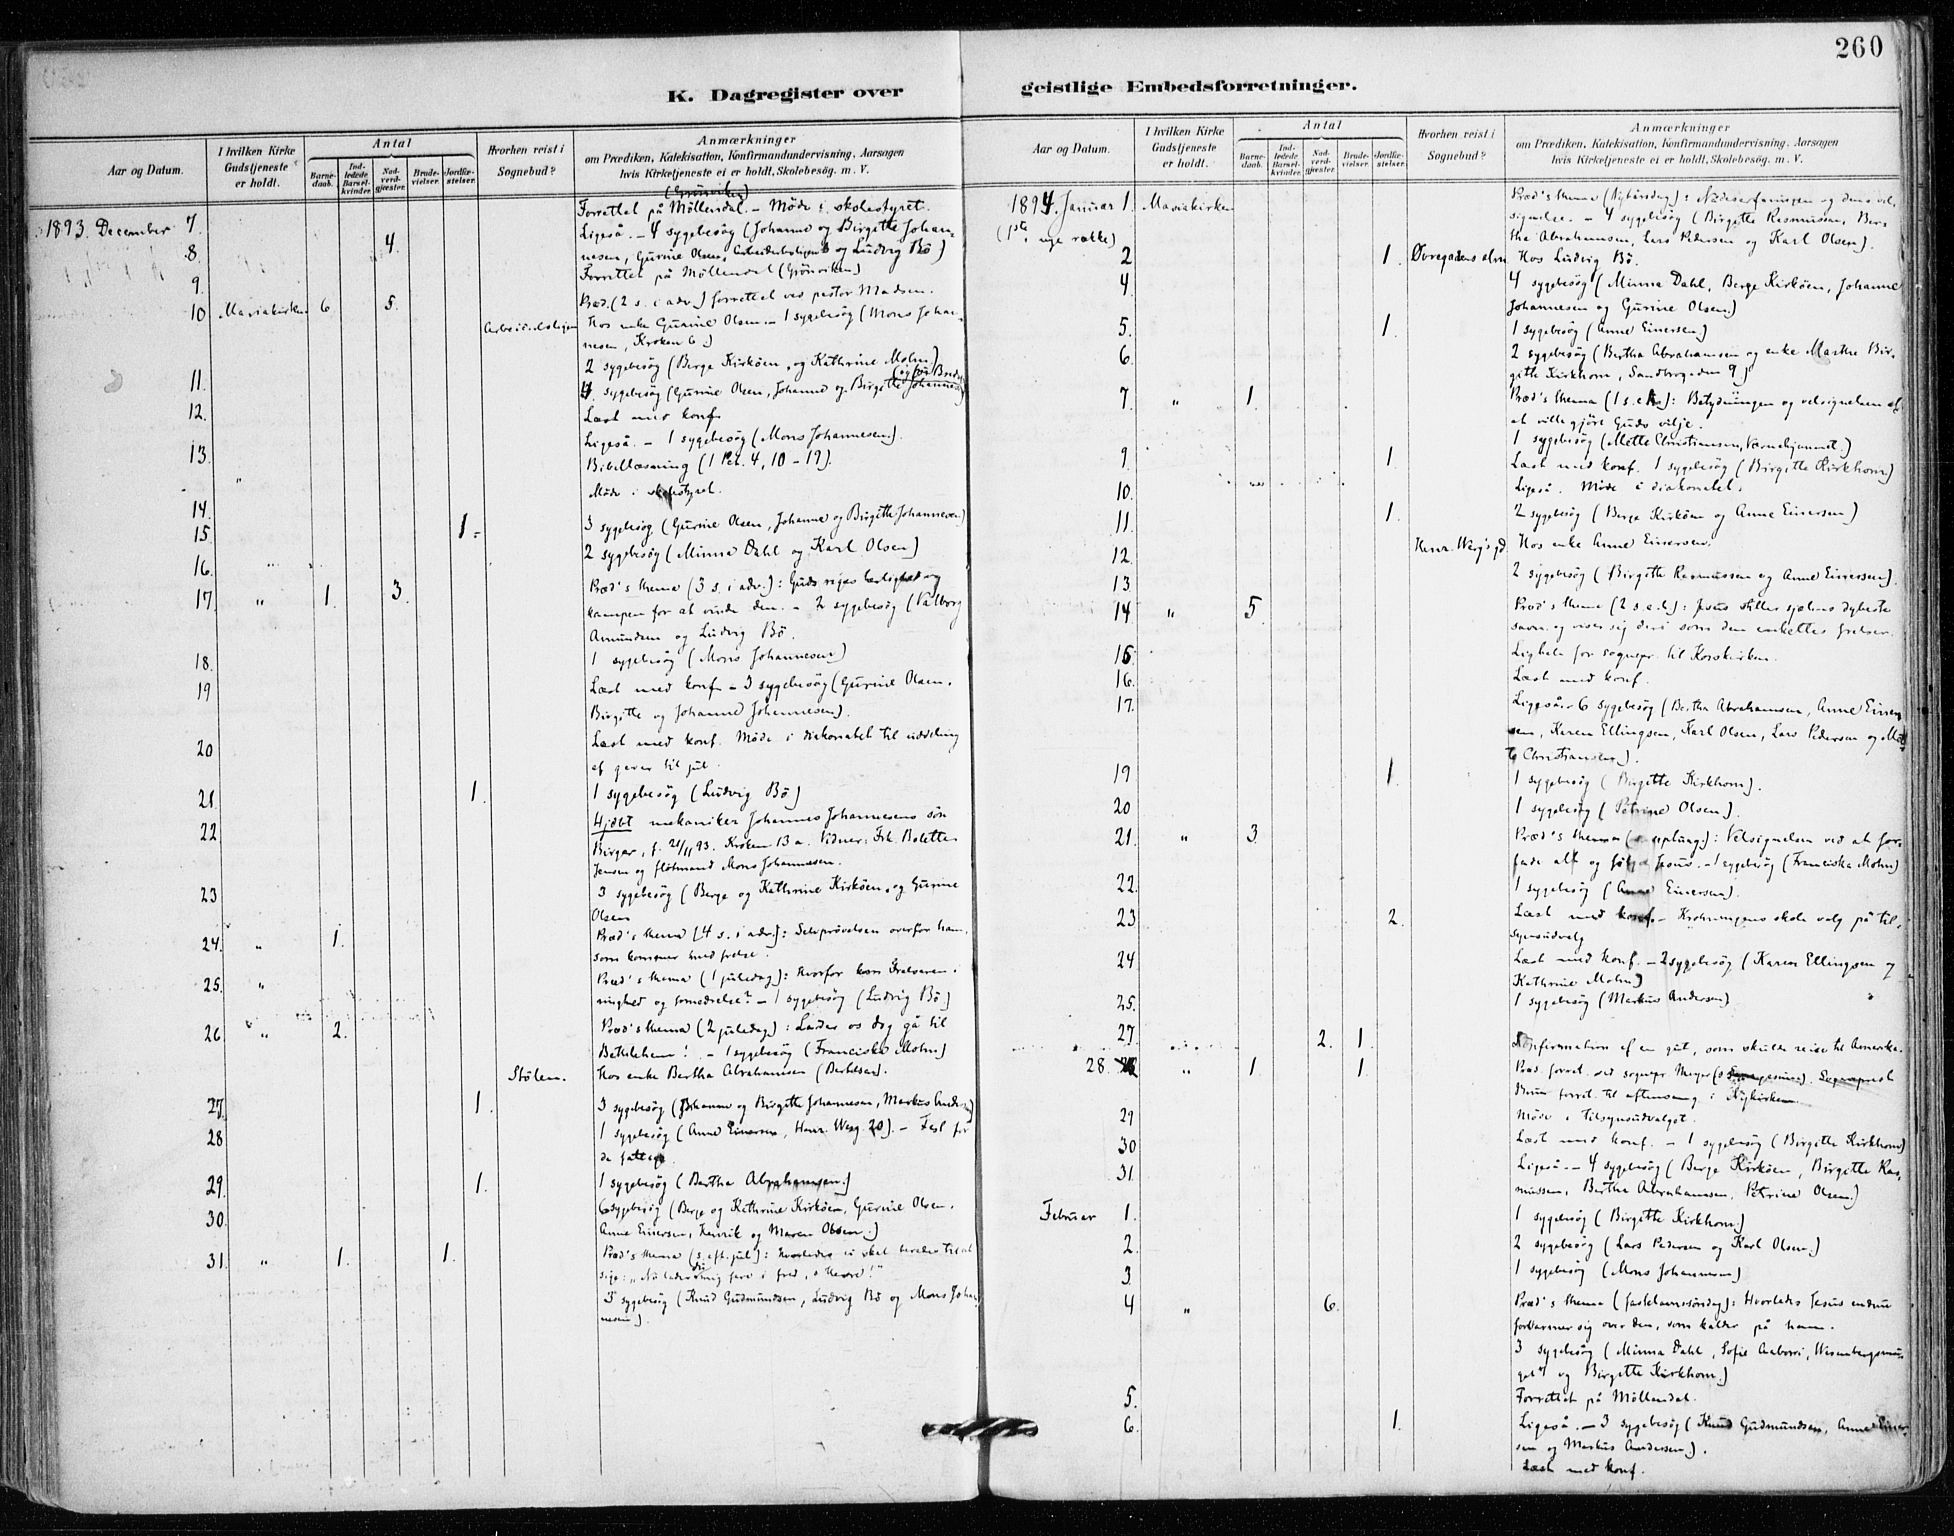 260
K. Dagregister over geistlige Embedsforretninger.
Aar og Datum.
I hvilken Kirke Gudstjeneste er holdt.
Antal
Barnedaab.
Indledede Barselkvinder.
Nadverdgjæster.
Brudevielser.
Jordfæstelser.
Hvorhen reist i Sognebud?
Anmærkninger
om Prædiken, Katekisation, Konfirmandundervisning, Aarsagen
hvis Kirketjeneste ei er holdt, Skolebesøg. m. V.
1893. December 7. Forrettet på Möllendal. – Möde i skolestyret.
8. 4 Ligeså. – 4 sygebesög (Johanne og Birgitte Johan-
nesen, Gurine Olsen, og Ludvig Bö)
9. Forrettet på Möllendal (Grönviken)
10 Mariakirken 6 5. Præd. (2 s. i adv.) forrettet ved pastor Madsen.
Hos enke Gurine Olsen. – 1 sygebesög (Mons Johan-
nesen, Kroken 6.)
11. 2 sygebesög (Berge Kirköen, og Kathrine Mohn)
12. 4 sygebesög (Gurine Olsen, Johanne og Birgitte Johannesen)
Læst med konf.
13. Ligeså. – 1 sygebesög (Mons Johannesen).
" Bibellæsning (1 Pet. 4, 10–19).
14. Möde i skolestyret.
15. 1 3 sygebesög (Gurine Olsen, Johanne og Birgitte Johannesen)
16. 2 sygebesög (Minna Dahl og Karl Olsen)
17. " 1. 3. Præd's thema (3 s. i adv.): Guds riges herlighed og
kampen for at vinde den. – 2 sygebesög (Valborg
Amundsen og Ludvig Bö.
18. 1 sygebesög (Mons Johannesen)
19 Læst med konf – 3 sygebesög (Gurine Olsen,
Birgitte og Johanne Johannesen).
20 Læst med konf. Möde i diakonatet til uddeling
af gaver til jul.
21. 1. 1 sygebesög (Ludvig Bö)
22 Hjdbt mekaniker Johannes Johannesens sön
Birger, f. 21/11 93. Kroken 13 a. Vidner: Frk. Bolette
Jensen og flötmand Mons Johannesen.
23 3 sygebesög (Berge og Kathrine Kirköen, og Gurine
Olsen
24. " 1. Præd's thema (4 s. i adv.): Selvprövelsen overfor ham,
som kommer med frelse.
25. " Præd's thema (1 juledag): Hvorfor kom frelseren i
ringhed og fornedrelse? – 1 sygebesög (Ludvig Bö)
26 " 2. Præd's thema (2 juledag): Lader os dog gå til
Bethlehem! – 1 sygebesög (Franciska Mohn)
Stölen. Hos enke Bertha Abrahamsen (Bertelsen).
27. 1. 3 sygebesög (Johanne og Birgitte Johannesen, Markus Andersen)
28 1 sygebesög (Anne Einersen, Henr. Werg. 20). – Fest for
de fattige.
29. 1. 1 sygebesög (Bertha Abrahamsen.)
30. 6 sygebesög (Berge og Kathrine Kirköen, Gurine Olsen,
Anne Einersen, Henrik og Maren Olsen.)
31. " 1. 1. Præd's thema (s. eft. jul): Hvorledes vi skal berede til at
sige: „Nu lader du mig fare i fred, o Herre!"
3 sygebesög (Knud Gudmundsen, Ludvig Bö og Mons Johan-
nesen).
Aar og Datum.
I hvilken Kirke Gudstjeneste er holdt.
Antal
Barnedaab.
Indledede Barselkvinder.
Nadverdgjæster.
Brudevielser.
Jordfæstelser.
Hvorhen reist i Sognebud?
Anmærkninger
om Prædiken, Katekisation, Konfirmandundervisning. Aarsagen
hvis Kirketjeneste ei er holdt, Skolebesøg. m. V.
1894. Januar 1. Mariakirken Præd's thema (Nytårsdag): og dens vel-
(1ste nye række) signelse. – 4 sygebesög (Birgitte Rasmussen, Ber-
tha Abrahamsen, Lars Pedersen og Karl Olsen).
2 1. Övregadens alm. Hos Ludvig Bö.
4. 4 sygebesög (Minna Dahl, Berge Kirköen, Johanne
Johannesen og Gurine Olsen.)
5. 1. 1 sygebesög (Anne Einersen)
6. 2 sygebesög (Bertha Abrahamsen og enke Marthe Bir-
gitte Kirkhorn, Sandbrogaden 9)
7. " 1. Præd's thema (1 s. e. h.): Betydningen og velsignelsen af
at ville gjöre Guds vilje.
1 sygebesög (Mette Christiansen, Værnehjemmet.)
9. 1. Læst med konf. 1 sygebesög (Birgitte Kirkhorn)
10. Ligeså. Möde i diakonatet.
11. 1. 2 sygebesög (Berge Kirköen og Anne Einersen)
12. Henr. Werg's gd. Hos enke Anne Einersen.
13. 2 sygebesög (Birgitte Rasmussen og Anne Einersen).
14 " 5. Præd's thema (2 s. e. h.): Jesus stiller sjælens dybeste
savn og viser sig deri som den enkeltes frelser.
15. Lighele for sognepr. til Korskirken.
16. Læst med konf.
17. Ligeså. 6 sygebesög (Bertha Abrahamsen, Anne Einer-
sen, Karen Ellingsen, Karl Olsen, Lars Pedersen og Met-
te Christiansen).
19 1. 1 sygebesög (Birgitte Kirkhorn).
20 1 sygebesög (Petrine Olsen).
21. " 3. Præd's thema (s. septuag.): Velsignelsen ved at for-
lade alt og fölge Jesus. – 1 sygebesög (Franciska Mohn)
22. 1 sygebesög (Anne Einersen).
23 2. Læst med konf. – Krohnengens skole valg på til-
synsudvalg
24 Læst med konf. – 2 sygebesög (Karen Ellingsen og
Kathrine Mohn)
25. 1 sygebesög (Markus Andersen)
27. 2. 1. Konfirmation af en gut, som skulde reise til Amerika.
28. " 1. 1. Præd. forret. ved sognepr. Meyer
forret. til aftensang i Nykirken.
29 Möde i tilsynsudvalget.
30 Læst med konf. – 1 sygebesög (Birgitte Kirkhorn)
31. Ligeså. – 4 sygebesög (Berge Kirköen, Birgitte Ras-
mussen, Bertha Abrahamsen, Petrine Olsen.)
Februar 1. 1 sygebesög (Birgitte Kirkhorn.)
2. 2 sygebesög (Lars Pedersen og Karl Olsen.)
3. 1 sygebesög (Mons Johannesen)
4 " 6. Præd's thema (fastelavnssöndag): Hvorledes Jesus endnu
forbarmer sig over den, som kalder på ham.
3 sygebesög (Minna Dahl, Sofie
og Birgitte Kirkhorn.)
5. Forrettet på Möllendal.
6. 1. Ligeså. – 3 sygebesög (Knud Gudmundsen, Anne Einer-
sen og Markus Andersen).
Læst med konf.